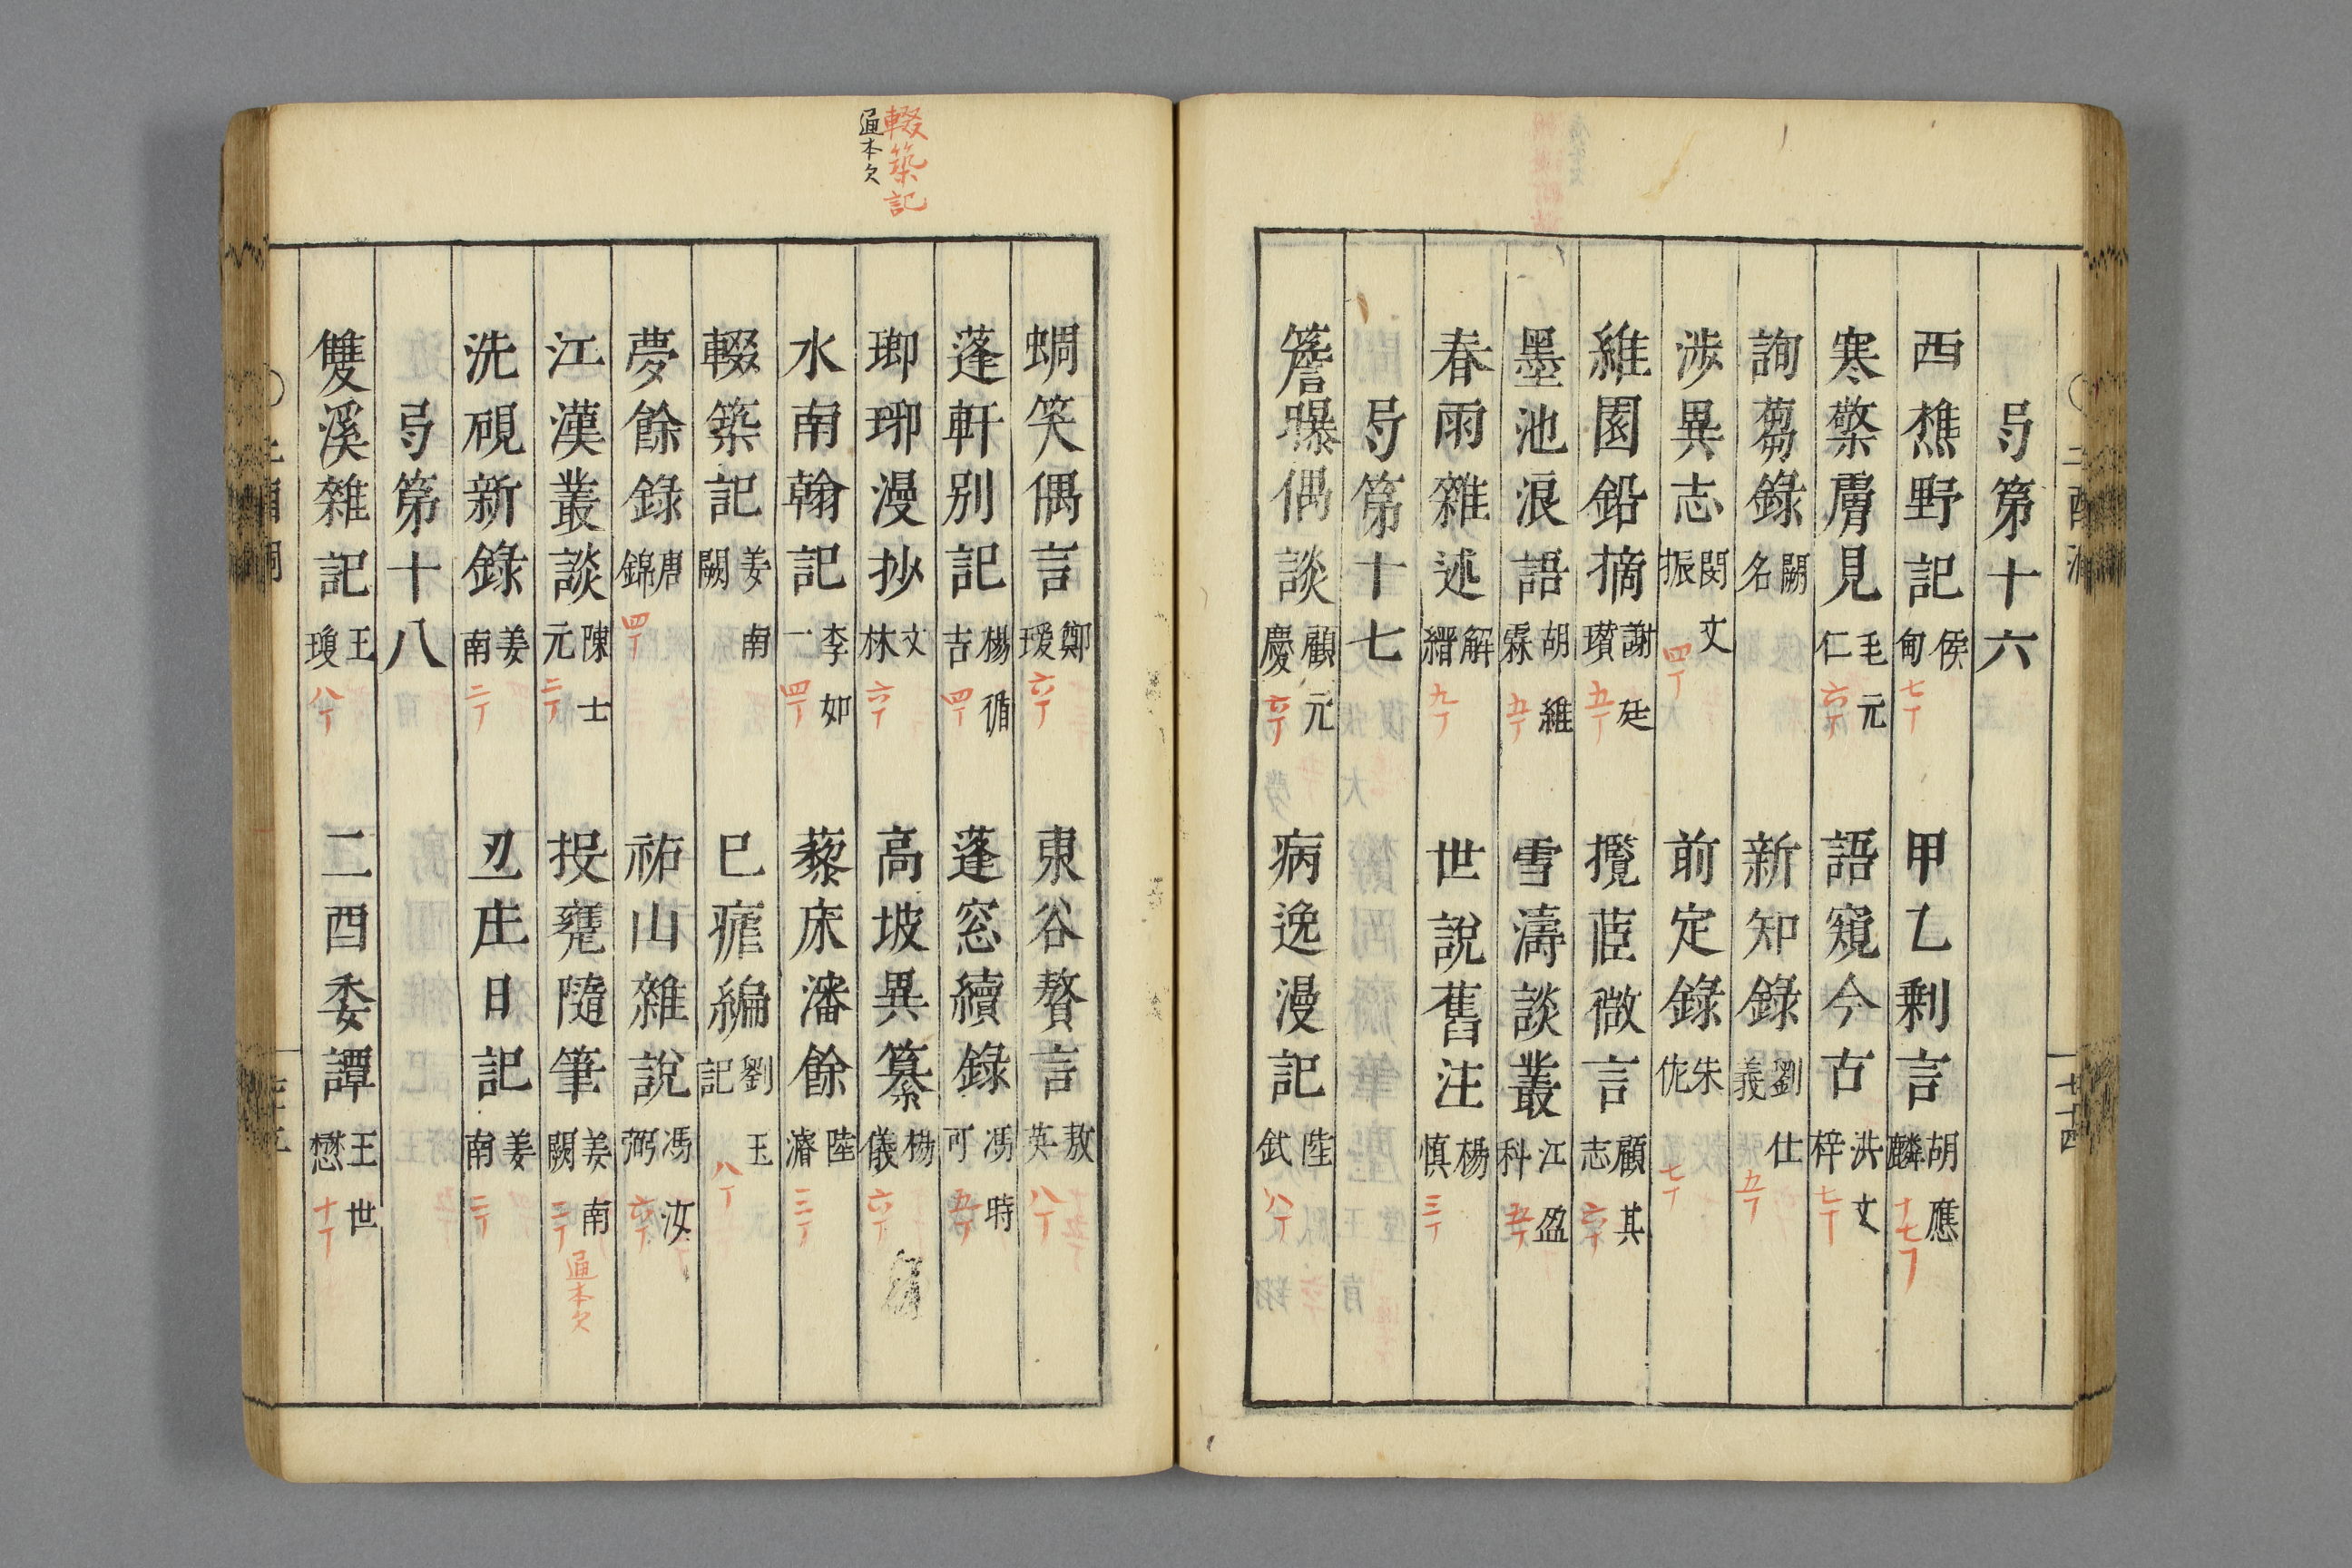 弓第十六
西樵野記 侯甸 七丁 甲乙剩言 胡應麟 十七丁
寒檠膚見 毛元仁 六丁 語窺今古 洪文梓 七丁
詢蒭錄 闕名 新知錄 劉仕義 五丁
涉異志 閔文振 四丁 前定錄 朱佐 七丁
維園鉛摘 謝廷瓚 五丁 攬茝微言 顧其志 六丁
墨池浪語 胡維霖 五丁 雪濤談叢 江盈科 五丁
春雨雜述 解縉 九丁 世說舊注 楊慎 三丁
弓第十七
簷曝偶談 顧元慶 六丁 病逸漫記 陸釴 八丁
輟築記
通本欠
蜩笑偶言 鄭瑗 六丁 東谷贅言 敖英 八丁
蓬軒別記 楊循吉 四丁 蓬窓續錄 馮時可 五丁
瑯琊漫抄 文林 六丁 高坡異纂 楊儀 六丁
水南翰記 李如一 四丁 藜床瀋餘 陸濬 三丁
輟築記 姜南 闕 巳瘧編 劉玉記 八丁
夢餘錄 唐錦 四丁 祐山雜說 馮汝弼 六丁
江漢叢談 陳士元 二丁 投甕隨筆 姜南 闕 二丁 通本欠
洗硯新錄 姜南 二丁 丑庄日記 姜南 二丁
弓第十八
雙溪雜記 王瓊 八丁 二酉委譚 王世懋 十丁